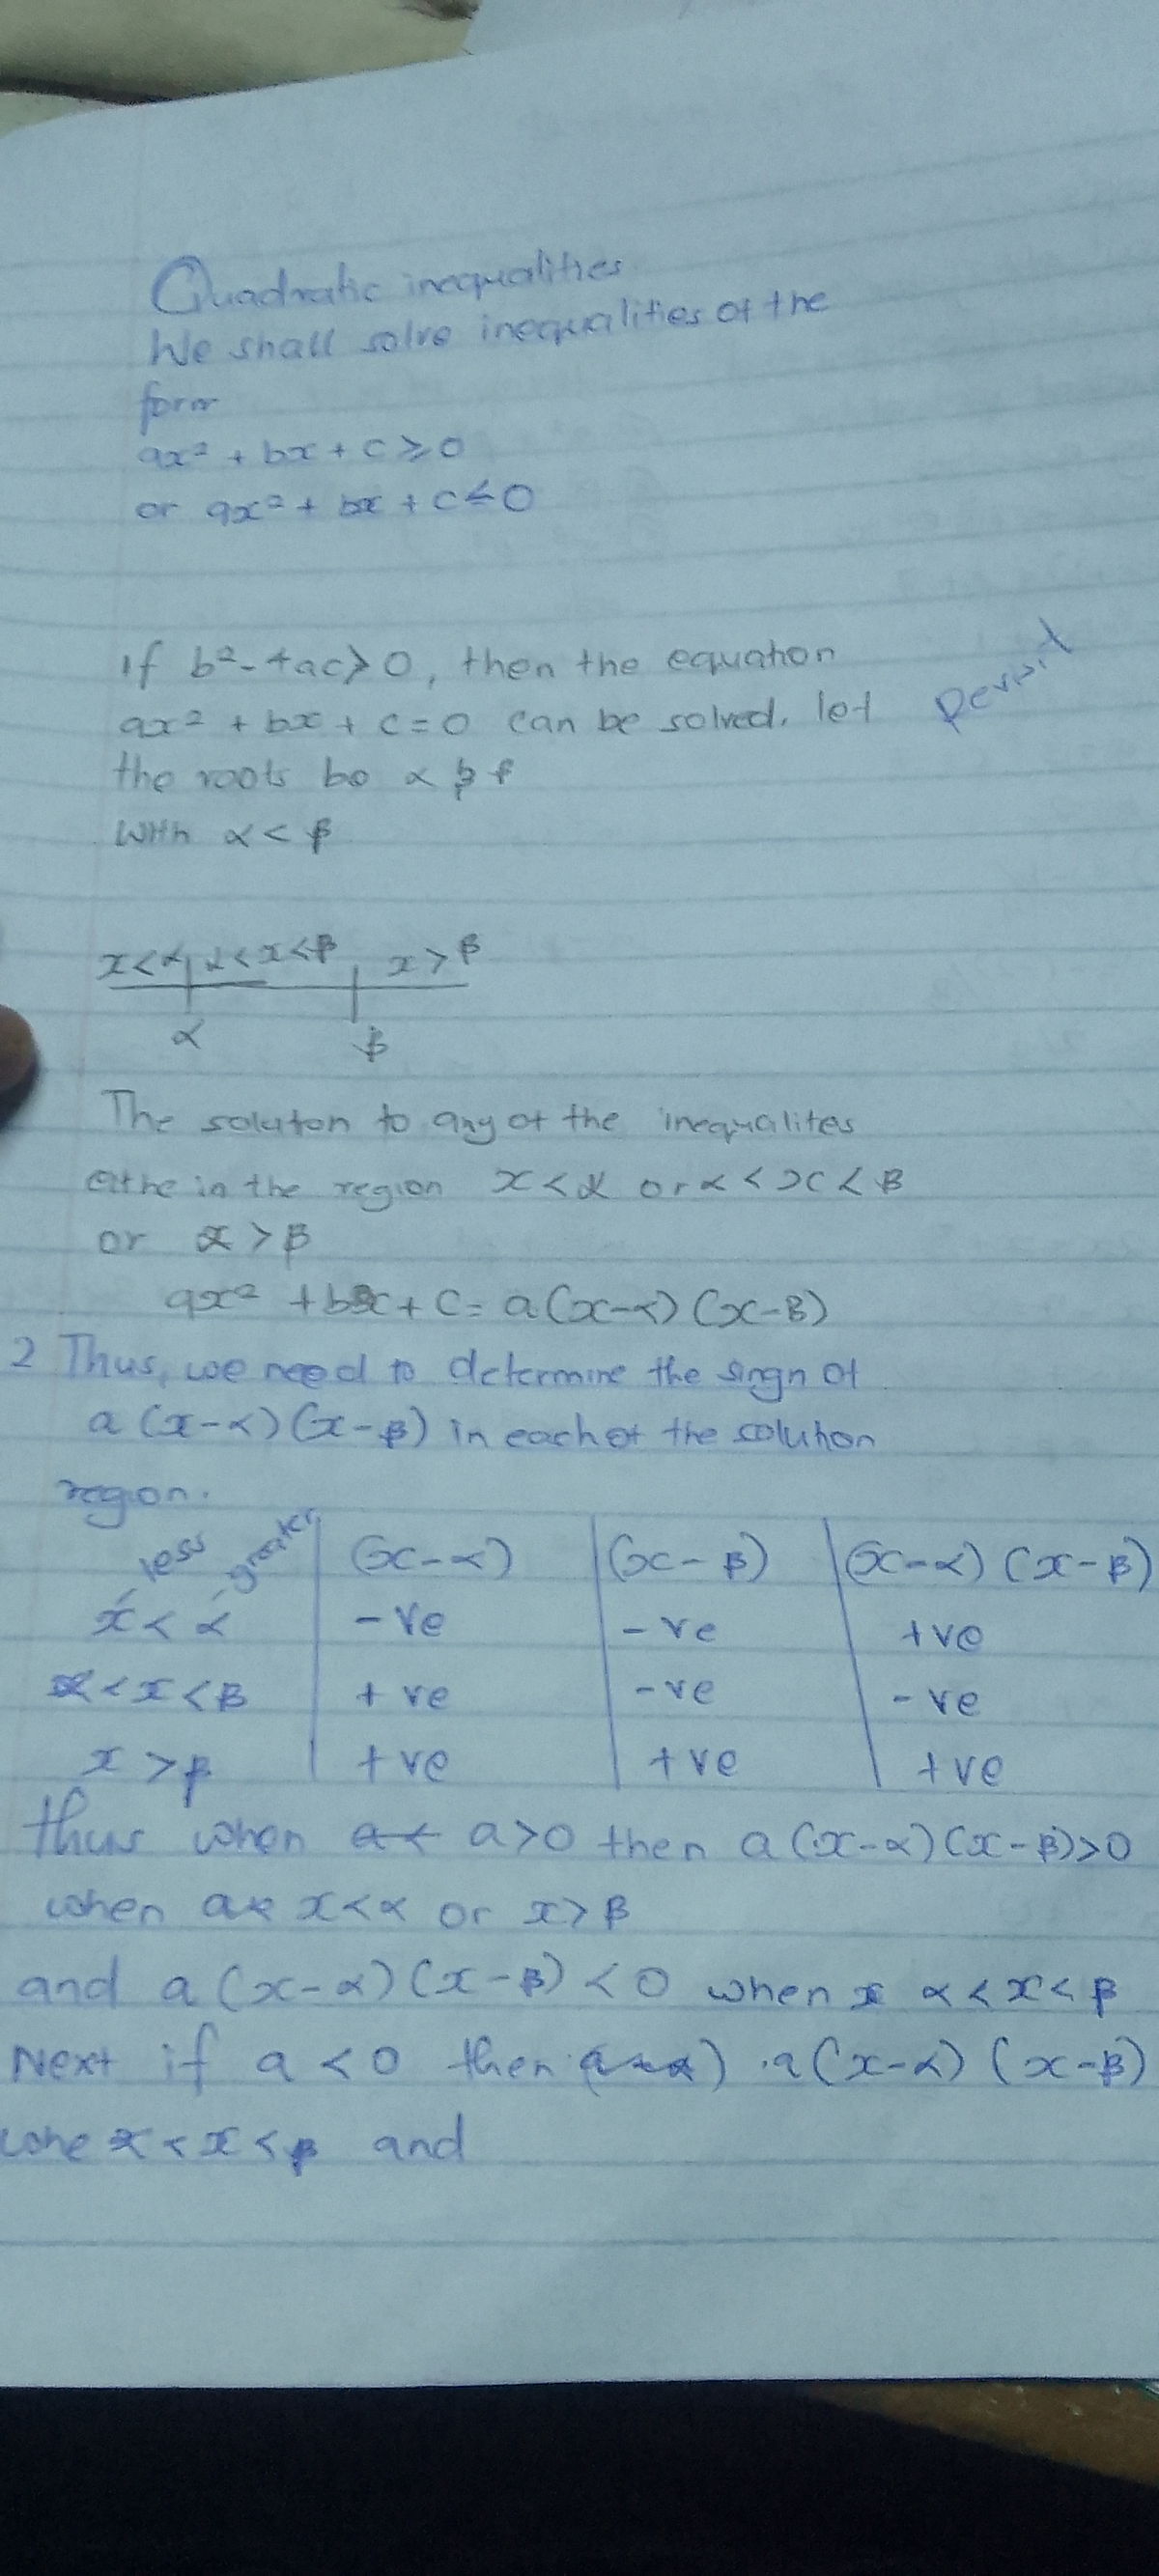 Quadratic inequalities.
We shall solve inequalities of the
form
ax² + bx + c ≥ 0
or ax² + bx + c ≤ 0
If b² - 4ac > 0, then the equation
ax² + bx + c = 0 can be solved. let
the roots be α
with α < β
x < α α < x < β x > β
α β
The soluton to any of the inequalites
eithe in the region x < α or α < x < β
or x > β
ax² + bx + c = a(x-α)(x-β)
2 Thus, we need to determine the singn of
a(x-α)(x-β) in each of the solution
region.
less greater (x-α) (x-β) (x-α)(x-β)
x < α -ve -ve +ve
α < x < β +ve -ve -ve
x > β +ve +ve +ve
thus when a>0 then a(x-α)(x-β)>0
when x<α or x>β
and a(x-α)(x-β)<0 when α<x<β
Next if a<0 then a(x-α)(x-β)
α<x<β and